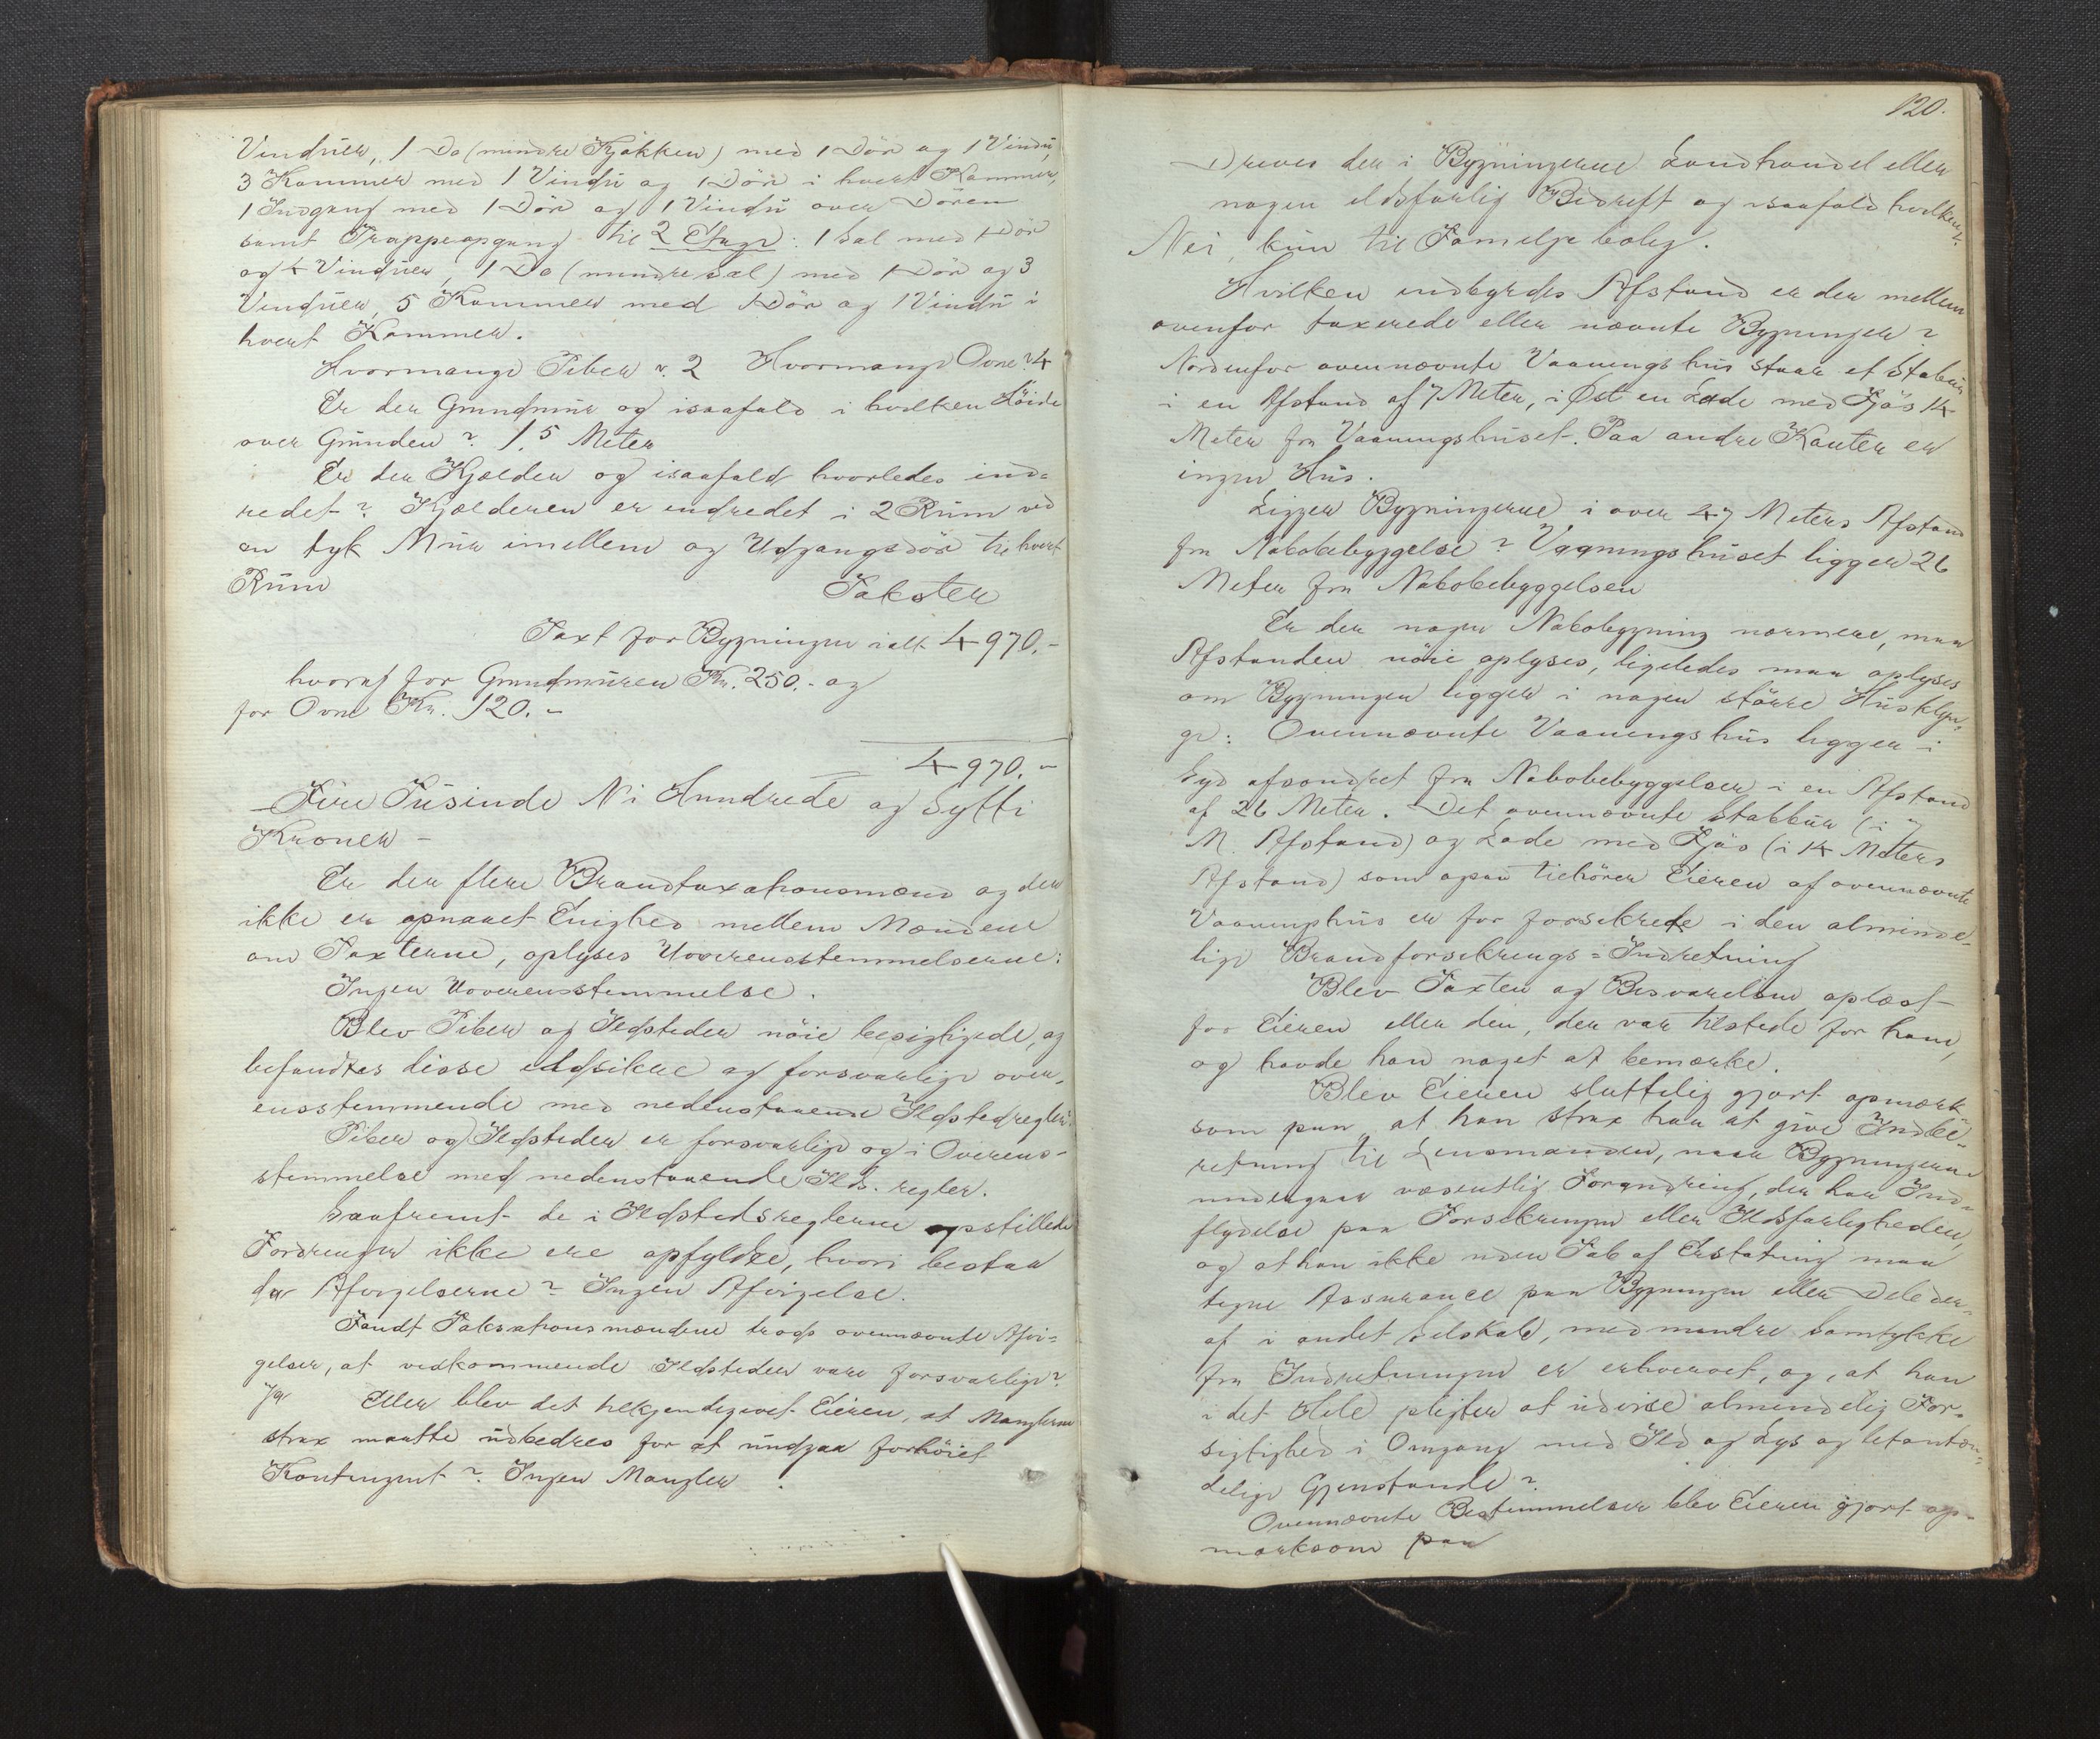 Vinduer, 1 Do (mindre Kjøkken) med 1 Dör og 1 Vindu,
3 Kammer med 1 Vindu og 1 Dör i hvert Kammer,
1 Indgang med 1 Dör og 1 Vindu over Dören
samt Trappeopgang til 2 Etage: 1 Sal med 1 Dör
og 4 Vinduer, 1 Do (mindre Sal) med 1 Dör og 3
Vinduer, 5 Kammer med 1 Dör og 1 Vindu i
hvert Kammer.
Hvormange Piber? 2 Hvormange Ovne? 4
Er der Grundmur og isaafald i hvilken Höide
over Grunden? 1,5 Meter
Er der Kjælder og isaafald hvorledes ind=
redet? Kjælderen er indredet i 2 Rum ved
en tyk Mur imellem og Udgangsdör til hvert
Rum
Takster
Taxt for Bygningen ialt 4970.-
hvoraf for Grundmuren Kr. 250.- og
for Ovne Kr. 120.-
4970.-
Fire Tusinde Ni Hundrede og Sytti
Kroner -
Er der flere Brandtaxationsmænd og der
ikke er opnaaet Enighed mellem Mændene
om Taxterne, oplyses Uoverensstemmelserne:
Ingen Uoverensstemmelse.
Blev Piber og Ildsteder nöie besigtigede, og
befandtes disse ildsikre og forsvarlige over-
ensstemmende med nedenstaaende Ildstedregler:
Piber og Ildsteder er forsvarlige og i Overens-
stemmelse med nedenstaaende Ilds. regler.
Saafremt de i Ildstedsreglerne opstillede
Fordringer ikke ere opfyldte, hvori bestaa
da Afvigelserne? Ingen Afvigelse.
Fandt Taksationsmændene trods ovennævnte Afvi-
gelser, at vedkommende Ildsteder vare forsvarlige?
Ja Eller blev det tilkjendegivet Eieren, at Manglerne
strax maatte udbedres for at undgaa forhöiet
Kontingent? Ingen Mangler.
120.
Dreves der i Bygningerne Landhandel eller
nogen ildsfarlig Bedrift og isaafald hvilken?
Nei, kun til Familjebolig.
Hvilken indbyrdes Afstand er der mellem
ovenfor taxerede eller nævnte Bygninger?
Nordenfor ovennævnte Vaaningshus staar et Stabur
i en Afstand af 7 Meter, i Øst en Lade med Fjös 14
Meter fra Vaaningshuset. Paa andre Kanter er
ingen Hus.
Ligger Bygningerne i over 47 Meters Afstand
fra Nabobebyggelse? Vaaningshuset ligger 26
Meter fra Nabobebyggelsen
Er der nogen Nabobygning nærmere, maa
Afstanden nöie oplyses, ligeledes maa oplyses
om Bygningen ligger i nogen större Husklyn-
ge: Ovennævnte Vaaningshus ligger i
Syd afsondret fra Nabobebyggelser i en Afstand
af 26 Meter. Det ovennævnte Stabbur (i 7
M. Afstand) og Lade med Fjös (i 14 Meters
Afstand) som ogsaa tilhörer Eieren af ovennævnte
Vaaningshus er før forsikrede i den alminde-
lige Brandforsikrings=Indretning
Blev Taxten og Besvarelsen oplæst
for Eieren eller den, der var tilstede for ham,
og havde han noget at bemærke.
Blev Eieren sluttelig gjort opmærk-
som paa, at han strax har at give Indbe-
retning til Lensmanden, naar Bygningerne
undergaar væsentlig Forandring, der har Ind-
flydelse paa Forsikringen eller Ildsfarligheden,
og at han ikke uden Tab af Erstatning maa
tegne Assurance paa Bygningen eller Dele der-
af i andet Selskab, med mindre Samtykke
fra Indretningen er erhvervet, og, at han
i det Hele pligter at udvise almindelig For-
sigtighed i Omgang med Ild og Lys og letantæn-
delige Gjenstande?
Ovennævnte Bestemmelser blev Eieren gjort op-
mærksom paa